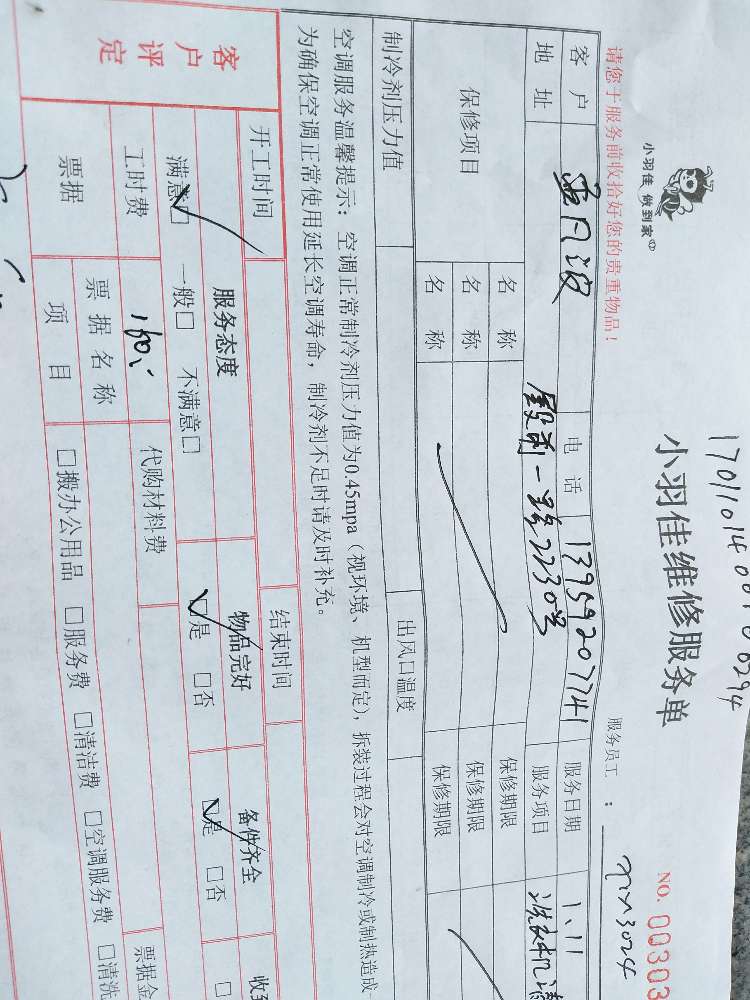 17011014001
0294
小羽佳 做到家
小羽佳维修服务单
NO. 00303
请您于服务前收拾好您的贵重物品！
服务员工：
xm3024
客户
电话 13959207741
服务日期 1.11
地址
一路2230号
服务项目 洗衣机清
保修项目
名称
保修期限
名称
保修期限
名称
保修期限
制冷剂压力值
出风口温度
空调服务温馨提示：空调正常制冷剂压力值为0.45mpa（视环境、机型而定），拆装过程会对空调制冷或制热造成
为确保空调正常使用延长空调寿命，制冷剂不足时请及时补充。
开工时间
结束时间
客户评定
服务态度
物品完好
备件齐全
收到
满意☑ 一般□ 不满意□
☑是 □否
☑是 □否
□
工时费 180
代购材料费
票据
票据名称
票据金
项目
□搬办公用品 □服务费 □清洁费 □空调服务费 □清洗